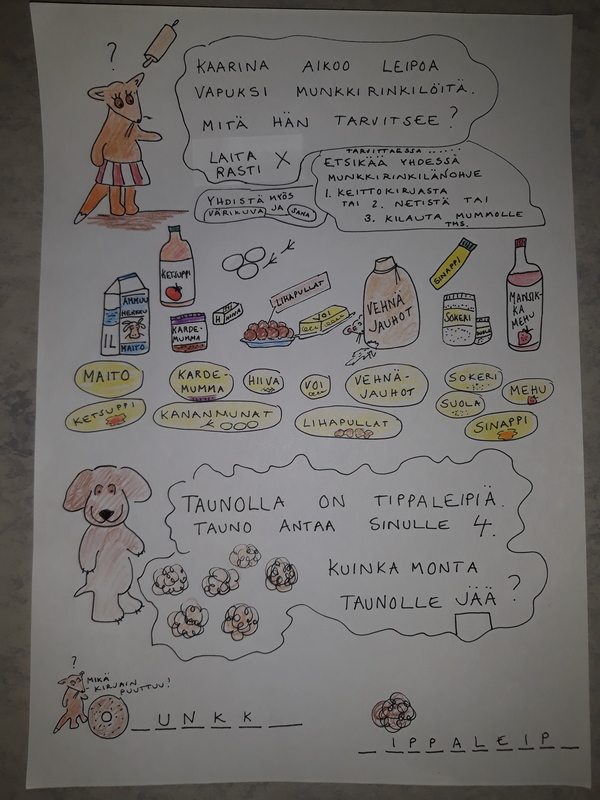 ?
KAARINA AIKOO LEIPOA
VAPUKSI MUNKKIRINKILÖITÄ.
MITÄ HÄN TARVITSEE?
LAITA RASTI X
TARVITTAESSA .....
ETSIKÄÄ YHDESSÄ
MUNKKIRINKILÄNOHJE
1. KEITTOKIRJASTA
TAI 2. NETISTÄ TAI
3. KILAUTA MUMMOLLE
TMS.
YHDISTÄ MYÖS
VÄRIKUVA JA SANA
KETSUPPI
LIHAPULLAT
SINAPPI
AMMUU
IL
MAITO
KARDE-
MUMMA
VOI
VEHNÄ
JAUHOT
SOKERI
MANSIK-
KA
MEHU
MAITO
KARDE-
MUMMA
HIIVA
VOI
VEHNÄ-
JAUHOT
SOKERI
MEHU
KETSUPPI
KANANMUNAT
LIHAPULLAT
SUOLA
SINAPPI
TAUNOLLA ON TIPPALEIPIÄ.
TAUNO ANTAA SINULLE 4.
KUINKA MONTA
TAUNOLLE JÄÄ?
?
MIKÄ
KIRJAIN
PUUTTUU?
_ U N K K _
_ I P P A L E I P _